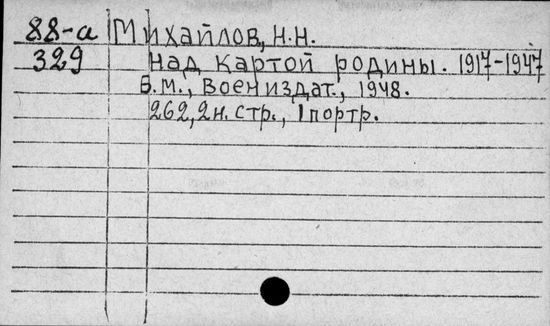 88-а Михайлов, Н.Н.
329 Над картой родины. 1917-1947
Б.м., Воениздат., 1948.
262, 2н. стр., 1 портр.